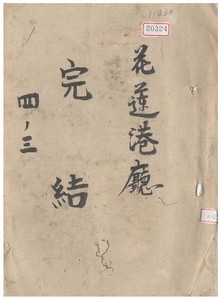 20324
花蓮港廳
完結
四ノ三